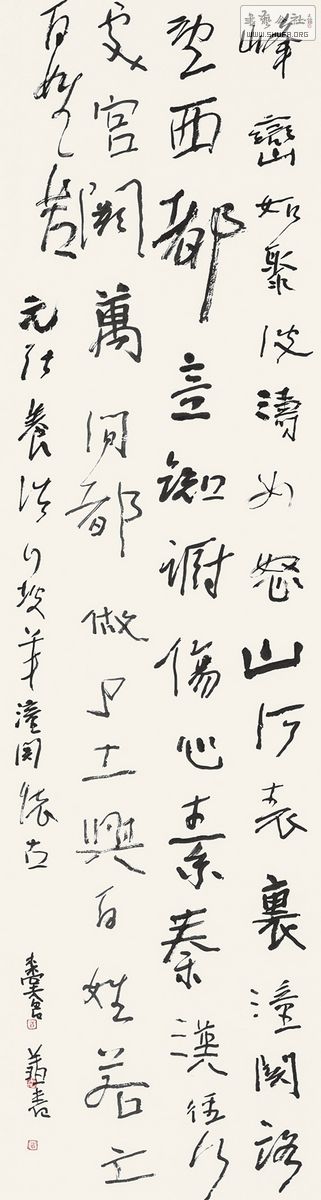 峰巒如聚波濤如怒山河表裏潼関路
望西都意踟躕傷心秦漢經行
處宮闕萬間都做了土興百姓苦亡
百姓苦
元張養浩山坡羊潼関懷古
書藝公社
WWW.SHUFA.ORG